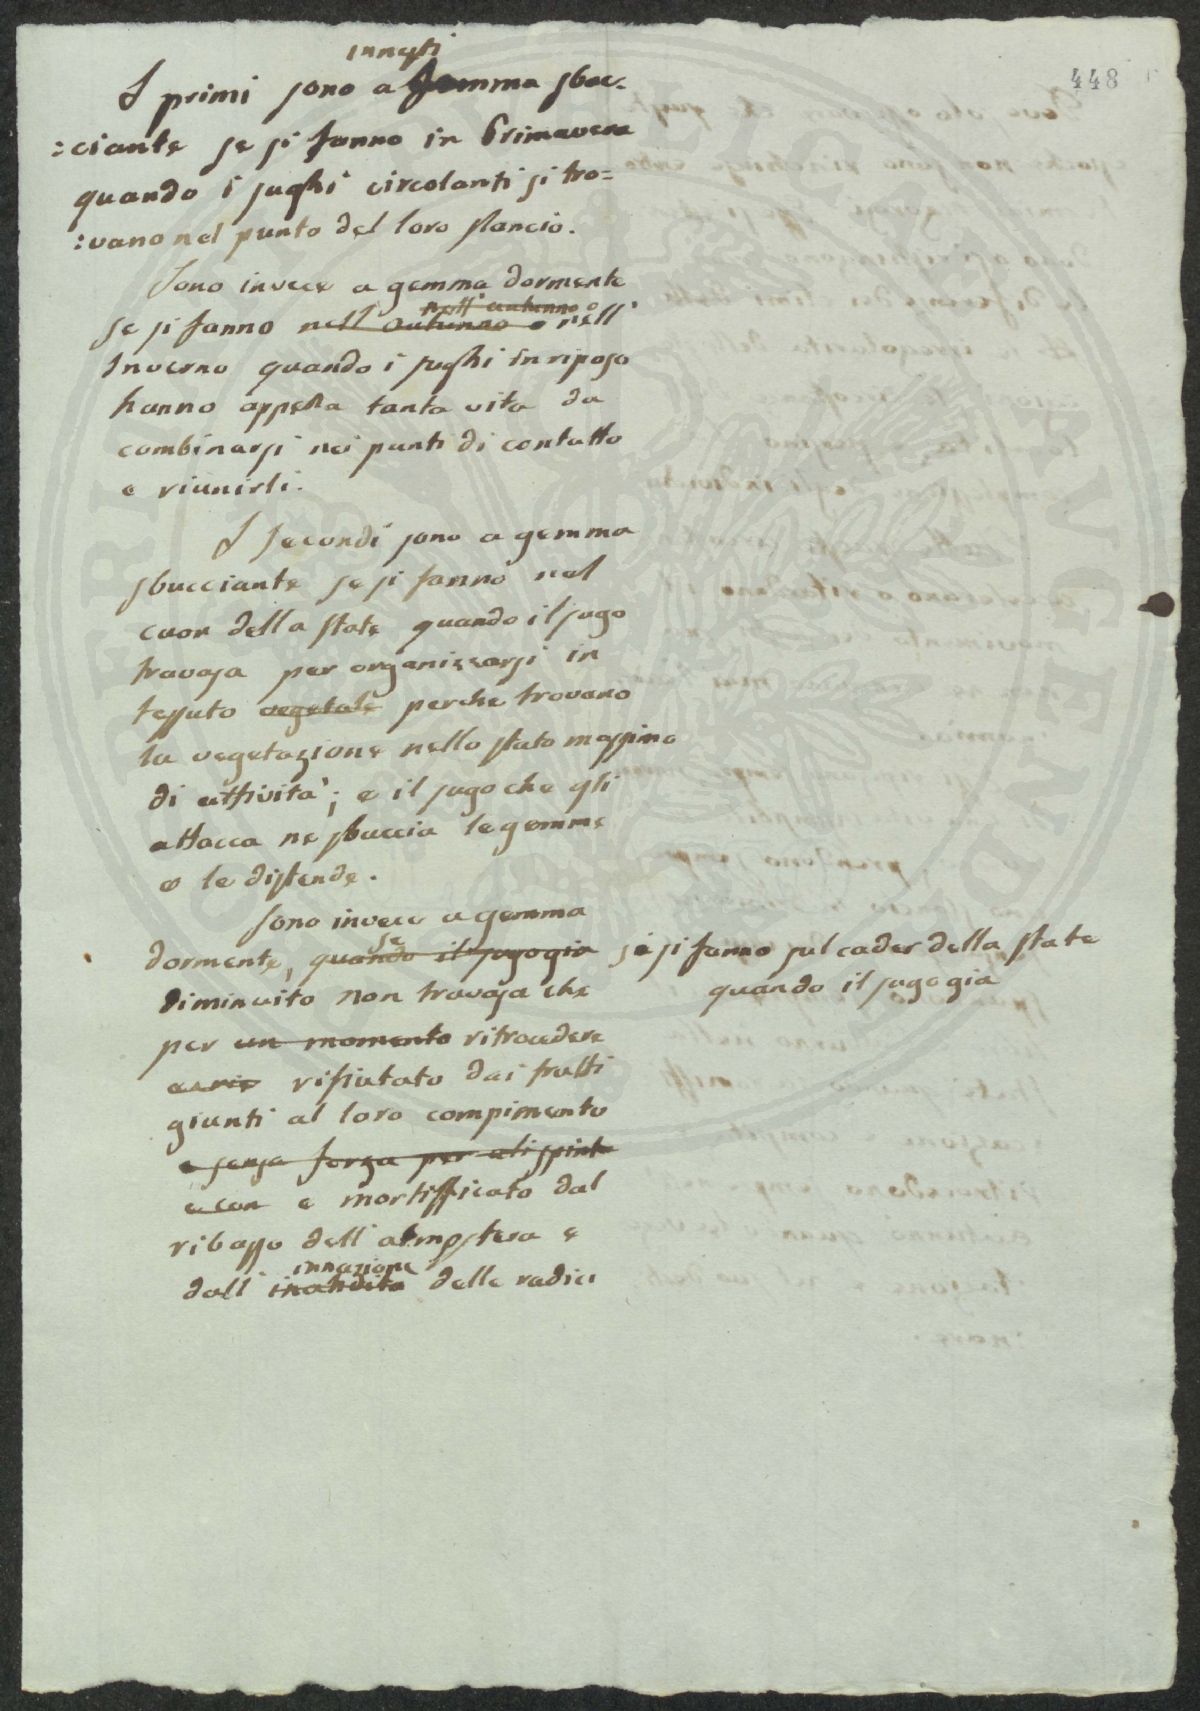 448
innesti
I primi sono a gemma sboc-
:ciante se si fanno in Primavera
quando i sughi circolanti si tro=
:vano nel punto del loro slancio.
Sono invece a gemma dormente
nell' autunno o
se si fanno nell' autunno o nell'
Inverno quando i sughi in riposo
hanno appena tanta vita da
combinarsi nei punti di contatto
e riunirli.
I secondi sono a gemma
sbucciante se si fanno nel
cuor della state quando il sugo
travasa per organizzarsi in
tessuto vegetale perche trovano
la vegetazione nello stato massimo
di attività; e il sugo che gli
attacca ne sbuccia le gemme
e le distende.
Sono invece a gemma
se
dormente, quando il sugo già se si fanno sul cader della state
quando il sugo già
diminuito non travasa che
per un momento ritrocedere
rifiutato dai frutti
giunti al loro compimento
e senza forza per
e con e mortifficato dal
ribasso dell' atmosfera e
innazione
dall' delle radici